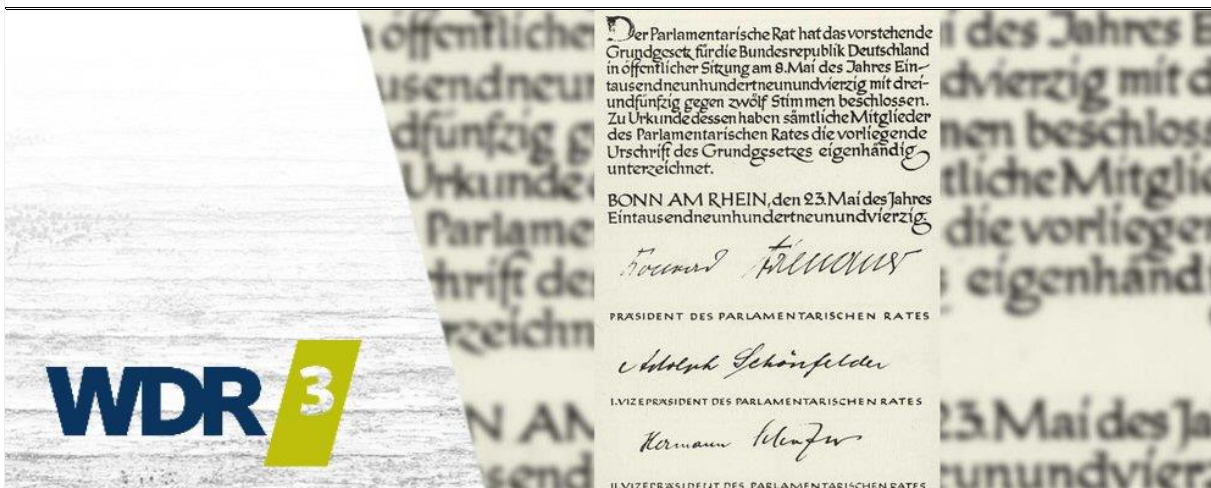 Der Parlamentarische Rat hat das vorstehende
Grundgesetz für die Bundesrepublik Deutschland
in öffentlicher Sitzung am 8. Mai des Jahres Ein-
tausendneunhundertneunundvierzig mit drei-
undfünfzig gegen zwölf Stimmen beschlossen.
Zu Urkunde dessen haben sämtliche Mitglieder
des Parlamentarischen Rates die vorliegende
Urschrift des Grundgesetzes eigenhändig
unterzeichnet.
BONN AM RHEIN, den 23. Mai des Jahres
Eintausendneunhundertneunundvierzig.
Konrad Adenauer
PRÄSIDENT DES PARLAMENTARISCHEN RATES
Adolph Schönfelder
I. VIZEPRÄSIDENT DES PARLAMENTARISCHEN RATES
Hermann Schäfer
II. VIZEPRÄSIDENT DES PARLAMENTARISCHEN RATES
WDR 3